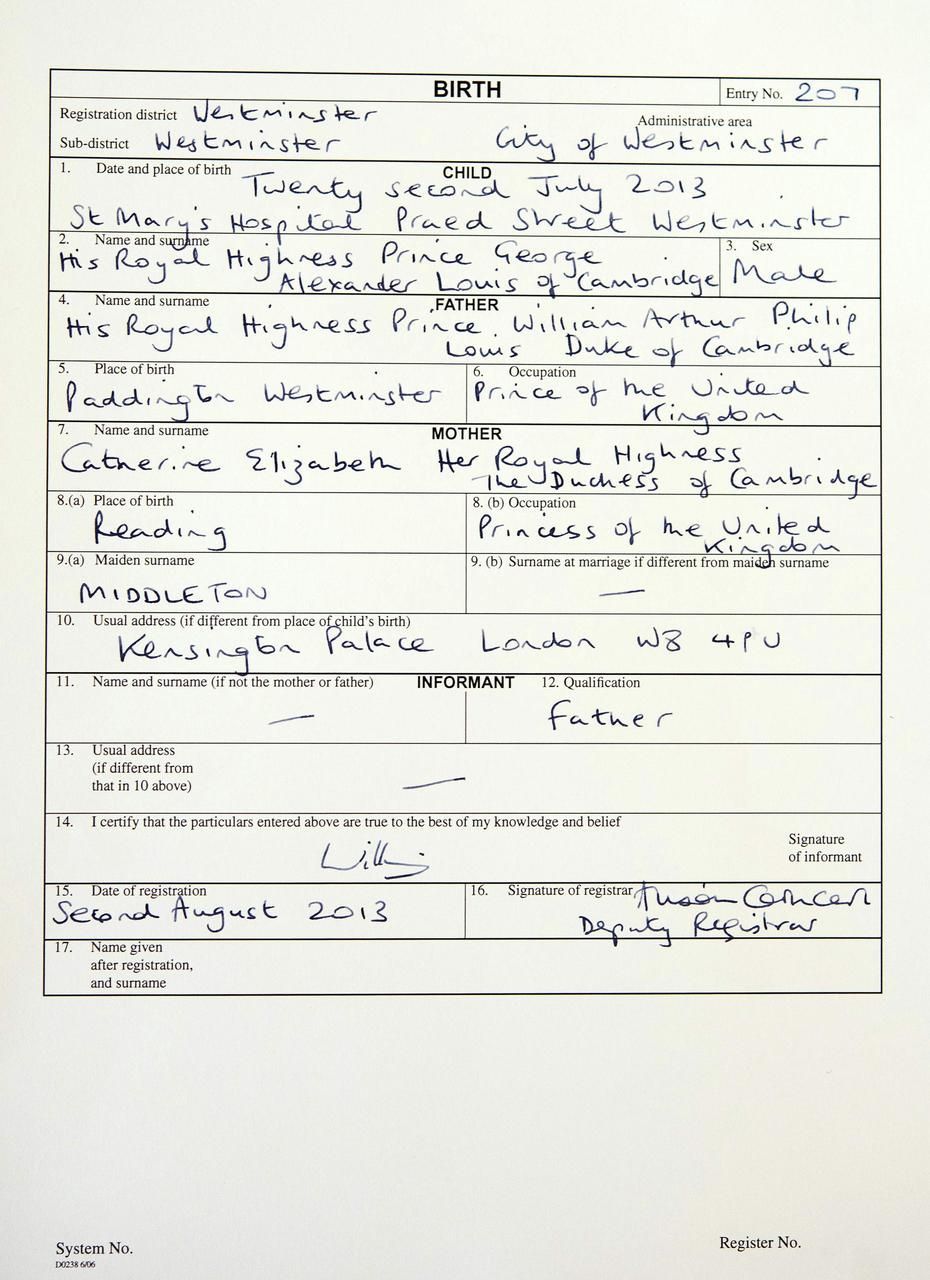 BIRTH
Entry No. 207
Registration district Westminster
Administrative area
Sub-district Westminster City of Westminster
1. Date and place of birth CHILD
Twenty second July 2013
St Mary's Hospital Praed Street Westminster
2. Name and surname
3. Sex
His Royal Highness Prince George
Alexander Louis of Cambridge
Male
4. Name and surname FATHER
His Royal Highness Prince William Arthur Philip
Louis Duke of Cambridge
5. Place of birth
6. Occupation
Paddington Westminster
Prince of the United
Kingdom
7. Name and surname MOTHER
Catherine Elizabeth Her Royal Highness
The Duchess of Cambridge
8.(a) Place of birth
8. (b) Occupation
Reading
Princess of the United
Kingdom
9.(a) Maiden surname
9. (b) Surname at marriage if different from maiden surname
MIDDLETON
—
10. Usual address (if different from place of child's birth)
Kensington Palace London W8 4PU
11. Name and surname (if not the mother or father) INFORMANT 12. Qualification
— Father
13. Usual address
(if different from
that in 10 above) —
14. I certify that the particulars entered above are true to the best of my knowledge and belief
Signature
of informant
15. Date of registration
16. Signature of registrar
Second August 2013
Deputy Registrar
17. Name given
after registration,
and surname
System No.
Register No.
D0238 6/06